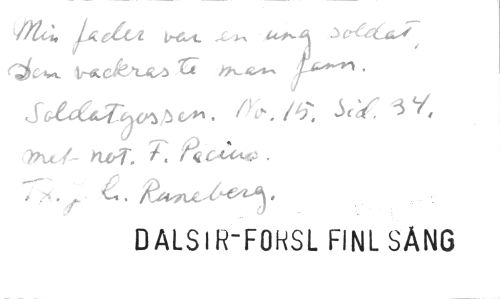 Min fader var en ung soldat,
Den vackraste man fann.
Soldatgossen. No. 15. Sid. 34.
met not. F. Pacius.
Tx. J. L. Runeberg.
DALSIR-FORSL FINL SÅNG